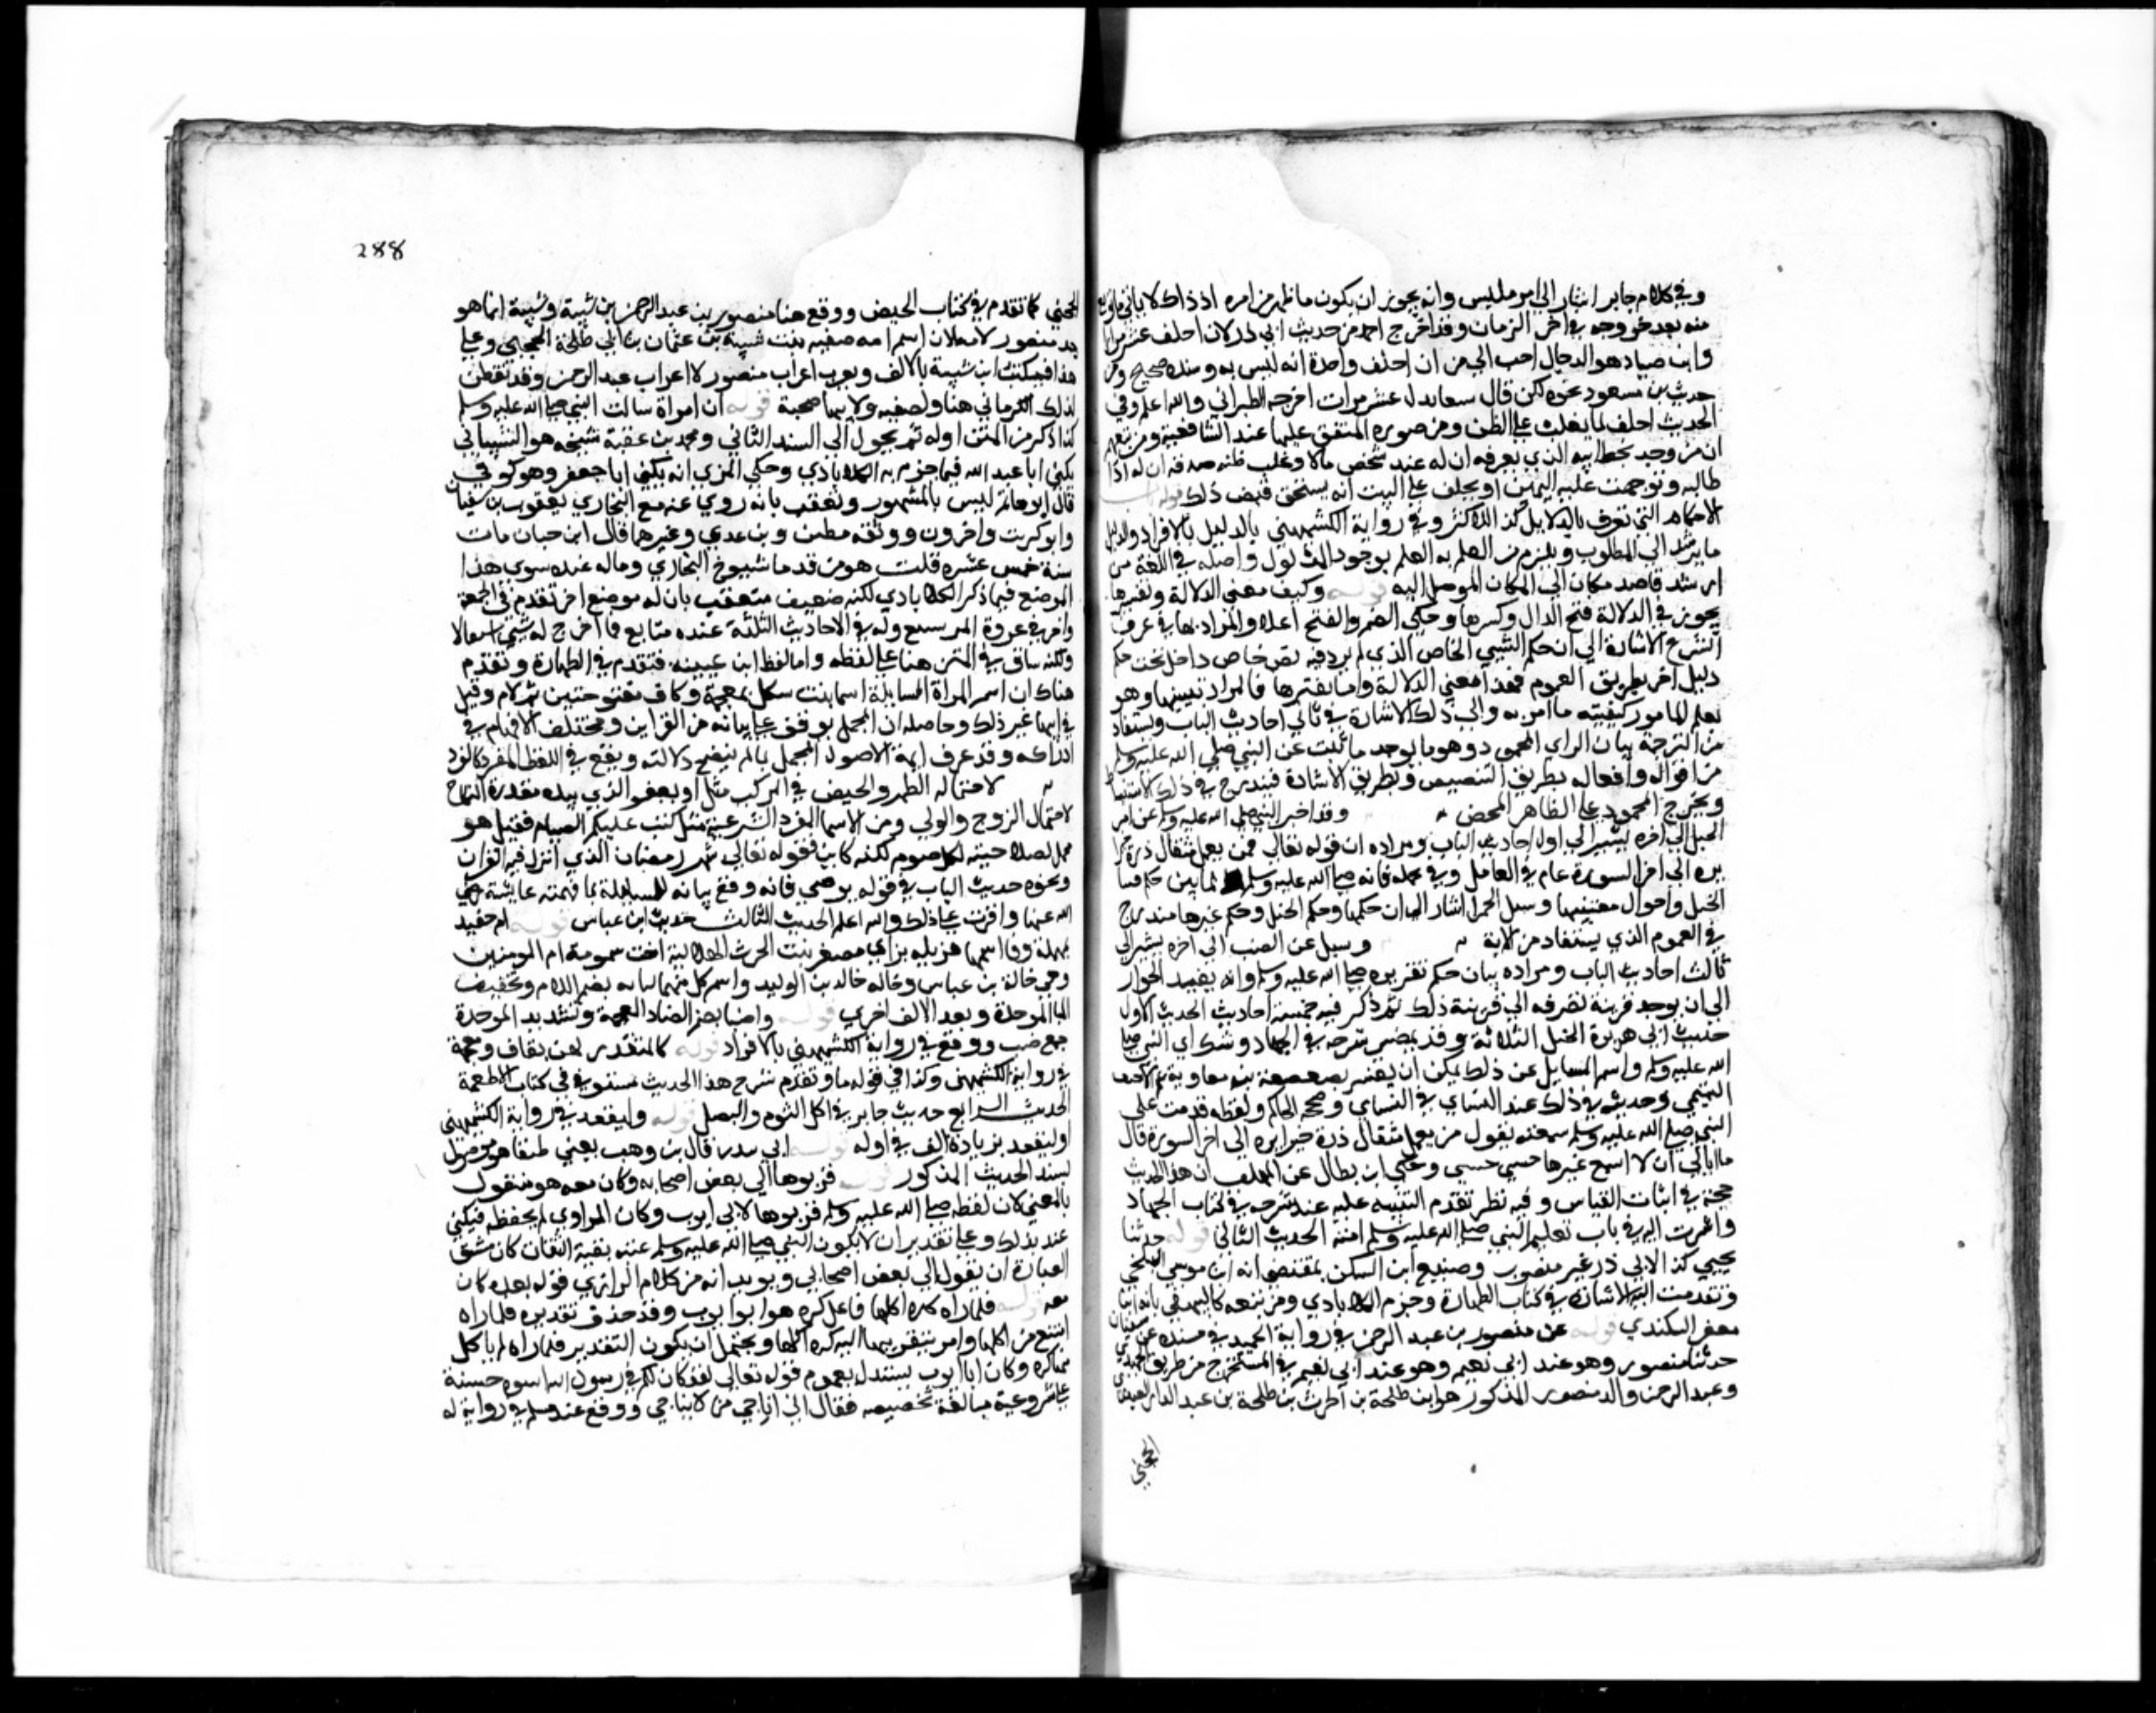 وفي كلام جابر اشار الى امر ملبس وانه يجوز ان يكون ما ظهر من امره اذ ذاك لا ينافي ما وقع
منه بعد خروجه في اخر الزمان وقد اخرج احمد من حديث ابي ذر لان احلف عشر مرار
وابن صياد هو الدجال احب الي من ان احلف واحدة انه ليس به وسنده صحيح ومن
حديث بن مسعود نحوه لكن قال سبعا بدل عشر مرات اخرجه الطبراني والله اعلم وفي
الحديث احلف لما يغلب على الظن ومن صوره المتفق عليها عند الشافعية ومن تبعهم
ان من وجد بخط ابيه الذي يعرفه ان له عند شخص مالا وغلب ظنه صدقه ان له اذا
طالبه وتوجهت عليه اليمين ان يحلف على البت انه يستحق قبض ذلك قوله باب
الاحكام التي تعرف بالدلايل كذا للاكثر وفي رواية الكشميهني بالدليل بالافراد والدليل
ما يرشد الى المطلوب ويلزم من العلم به العلم بوجود المدلول واصله في اللغة من
ارشد قاصد مكان الى المكان الموصل اليه قوله وكيف معنى الدلالة وتفسيرها
يجوز في الدلالة فتح الدال وكسرها وحكي الضم والفتح اعلا والمراد بها في عرف
الشرع الاشارة الى ان حكم الشيي الخاص الذي لم يرد فيه نص خاص داخل تحت حكم
دليل اخر بطريق العموم فهذا معنى الدلالة واما تفسيرها فالمراد تبيينها وهو
تعلم المامور كيفيته ما امر به والى ذلك الاشارة في ثاني احاديث الباب ويستفاد
من الترجمة بيان الراي المحمود وهو ما يوجد مما ثبت عن النبي صلى الله عليه وسلم
من اقواله وافعاله بطريق التنصيص وبطريق الاشارة فيندرج في ذلك الاستنباط
ويخرج الجمود على الظاهر المحض وقد اخبر النبي صلى الله عليه وسلم عن امر
الخيل الى اخره يشير الى اول احاديث الباب ومراده ان قوله تعالى فمن يعمل مثقال ذرة خيرا
يره الى اخر السورة عام في العامل وفي عمله فانه صلى الله عليه وسلم لما بين حكم قنيا
الخيل واحوال مقتنيها وسيل عن الحمر اشار الى ان حكمها وحكم الخيل وحكم غيرها مندرج
في العموم الذي يستفاد من الاية وسيل عن الضب الى اخره يشير الى
ثالث احاديث الباب ومراده بيان حكم تقريره صلى الله عليه وسلم وانه يفيد الجواز
الى ان يوجد قرينة تصرفه الى قرينة ذلك ثم ذكر فيه خمسة احاديث الحديث الاول
حديث ابي هريرة الخيل الثلاثة وقد مضى شرحه في الجهاد وشئل اي النبي صلى
الله عليه وسلم واسم السايل عن ذلك يمكن ان يفسر بصعصعة بن معاوية عم الاحنف
التميمي وحديثه في ذلك عند النساي في التفسير وصححه الحاكم ولفظه قدمت على
النبي صلى الله عليه وسلم سمعته يقول من يعمل مثقال ذرة خيرا يره الى اخر السورة قال
ما ابالي ان لا اسمع غيرها حسبي حسبي وحكي ابن بطال عن المهلب ان هذا الحديث
حجة في اثبات القياس وفيه نظر تقدم التنبيه عليه عند شرحه في كتاب الجهاد
واشرت اليه في باب تعليم النبي صلى الله عليه وسلم امته الحديث الثاني قوله حدثنا
يحيى كذا لابي ذر غير منسوب وصنيع ابن السكن يقتضي انه ابن موسى البلخي
وتقدمت اليه الاشارة في كتاب الطهارة وجزم الكلاباذي ومن تبعه كالبيهقي بانه ابن
جعفر البيكندي قوله عن منصور بن عبد الرحمن في رواية الحميدي في مسنده عن سفيان
حدثنا منصور وهو عند ابي نعيم وهو عند ابي نعيم في المستخرج من طريق الحميدي
وعبد الرحمن والد منصور المذكور هو ابن طلحة بن الحرث بن طلحة بن عبد الدار العبدري
الحجبي
288
الحجبي كما تقدم في كتاب الحيض ووقع هنا منصور بن عبد الرحمن بن شيبة وشيبة انما هو
جد منصور لامه لان اسم امه صفيه بنت شيبة بن عثمان بن ابي طلحة الحجبي وعلى
هذا فيكتب ابن شيبة بالالف ويعرب اعراب منصور لا اعراب عبد الرحمن وقد تفطن
لذلك الكرماني هنا ولصفيه ولابيها صحبة قوله ان امراة سالت النبي صلى الله عليه وسلم
كذا ذكر من المتن اوله ثم تحول الى السند الثاني ومحمد بن عقبة شيخه هو الشيباني
يكنى ابا عبد الله فيما جزم به الكلاباذي وحكى المزي انه يكنى ابا جعفر وهو كوفي
قال ابو حاتم ليس بالمشهور وتعقب بانه روى عنه مع البخاري يعقوب بن سفيان
وابو كريب واخرون ووثقه مطين وبن عدي وغيرهما قال ابن حبان مات
سنة خمس عشره قلت هو من قدما شيوخ البخاري وماله عنده سوى هذا
الموضع فيما ذكر الكلاباذي لكنه ضعيف متعقب بان له موضع اخر تقدم في الجمعة
واخر في غزوة المريسيع وله في الاحاديث الثلثة عنده متابع فما اخرج له شي استقلالا
ولكنه ساق في المتن هنا على لفظه واما لفظ ابن عيينه فتقدم في الطهارة وتقدم
هناك ان اسم المراة السايلة اسما بنت شكل بمعجمة وكاف مفتوحتين ثم لام وقيل
في ابيها غير ذلك وحاصله ان المجمل يوقف على بيانه من القراين ومختلف الافهام في
ادراكه وقد عرف ايمة الاصول المجمل بما لم تتضح دلالته ويقع في اللفظ المفرد كالقرء
لاحتماله الطهر والحيض في المركب مثل او يعفو الذي بيده عقدة النكاح
لاحتمال الزوج والولي ومن الاسما المفرد الشرعية مثل كتب عليكم الصيام فقيل هو
مجمل لصلاحيته لكل صوم لكنه كابن فقوله تعالى شهر رمضان الذي انزل فيه القران
ونحوه حديث الباب في قوله توضي فانه وقع بيانه للسايلة بما فهمته عايشة رضي
الله عنها واقرت على ذلك والله اعلم الحديث الثالث حديث ابن عباس قوله ام حفيد
بمهلة وفا اسمها هزيله بزاي مصغر بنت الحرث الهلالية اخت ميمومة ام المومنين
وهي خالة بن عباس وخالة خالد بن الوليد واسم كل منهما لبابه بضم اللام وتخفيف
البا الموحدة وبعد الالف اخرى قوله واضبا بضم الضاد المعجمة وتشديد الموحدة
جمع ضب ووقع في رواية الكشميهني بالافراد قوله كالمتقذر لهن بقاف ومعجمة
في رواية الكشميهني وكذا في قوله ما وتقدم شرح هذا الحديث مستوفى في كتاب الاطعمة
الحديث الرابع حديث جابر في اكل الثوم والبصل قوله وليقعد في رواية الكشميهني
او ليقعد بزيادة الف في اوله قوله ابي ببدر قال بن وهب يعني طبقا هو موصول
بسند الحديث المذكور قوله قربوها الى بعض اصحابه وكان معه هو منقول
بالمعنى لان لفظه صلى الله عليه وسلم قربوها لابي ايوب وكان الراوي لم يحفظه فيكنى
عنه بذلك وعلى تقدير ان لا يكون النبي صلى الله عليه وسلم عينه بقية النقان كان نسق
العبارة ان يقول الى بعض اصحابي ويويد انه من كلام الراوي قوله بعده كان
معه قوله فلما راه كره اكلها فاعل كره هو ابو ايوب وقد حذف تقديره فلما راه
امتنع من اكلها وامر بتقريبها اليه كره اكلها ويحتمل ان يكون التقدير فلما راه لم ياكل
منها كره وكان ابا ايوب يستدل بعموم قوله تعالى لقد كان لكم في رسول الله اسوة حسنة
على مشروعية متابعة تخصيصه فقال اني اناجي من لا تناجي ووقع عند مسلم في رواية له